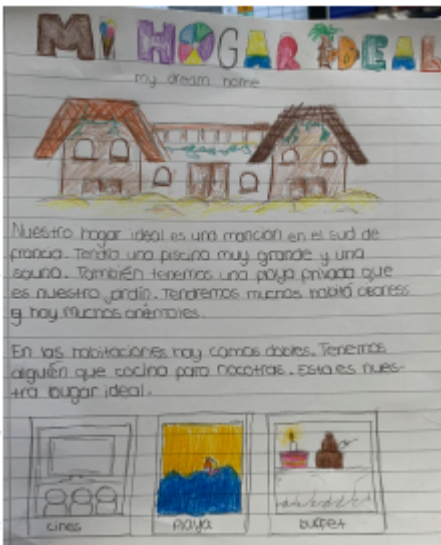 MI HOGAR IDEAL
my dream home
Nuestro hogar ideal es una mancion en el sud de
francia. Tendra una piscina muy grande y una
sauna. También tenemos una playa privada que
es nuestro jardín. Tendremos muchos
y hay muchos
En las habitaciones hay camas dobles. Tenemos
alguién que cocina para nocotras. Esta es nues-
tra lougar ideal.
cines
playa
buffet